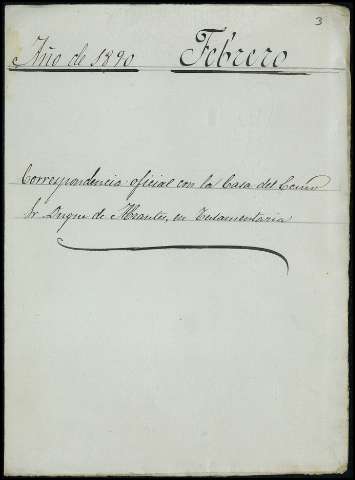 3
Año de 1890 Febrero
Correspondencia oficial con la Casa del Excmo
Sr Duque de Abrantes, en Testamentaria